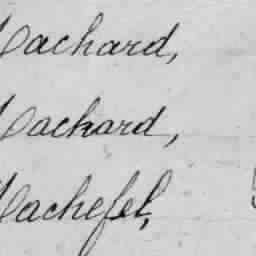 Machard,
Mackard,
Machefel,